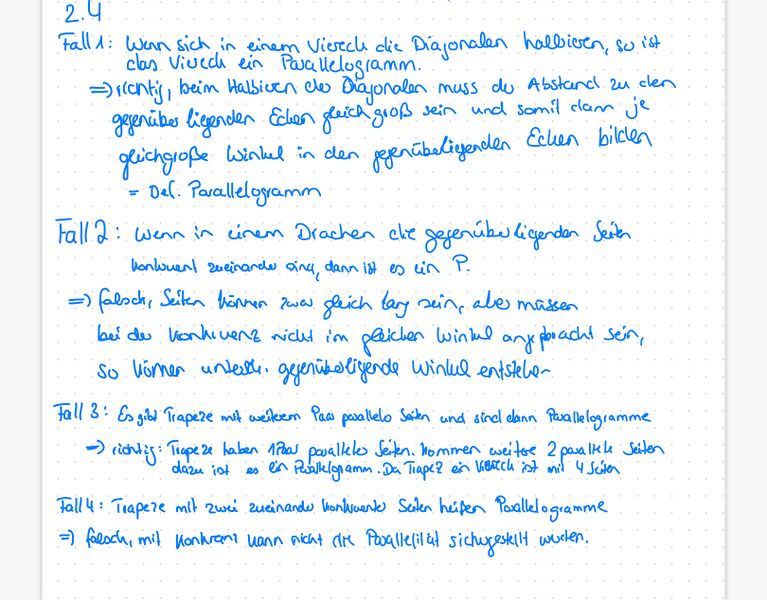 2.4
Fall 1: Wenn sich in einem Viereck die Diagonalen halbieren, so ist
das Viereck ein Parallelogramm.
=> richtig, beim Halbieren der Diagonalen muss der Abstand zu den
gegenüber liegenden Ecken gleich groß sein und somit dann je
gleichgroße Winkel in den gegenüberliegenden Ecken bilden
= Def. Parallelogramm
Fall 2: Wenn in einem Drachen die gegenüber liegenden Seiten
konkruent zueinander sind, dann ist es ein P.
=> falsch, Seiten können zwar gleich lang sein, aber müssen
bei der Konkruenz nicht im gleichen Winkel angebracht sein,
so können untersch. gegenüberliegende Winkel entstehen
Fall 3: Es gibt Trapeze mit weiterem Paar paralleler Seiten und sind dann Parallelogramme
-> richtig: Trapeze haben 1 Paar paralleler Seiten. Kommen weitere 2 parallele Seiten
dazu ist es ein Parallelogramm. Da Trapez ein Viereck ist mit 4 Seiten
Fall 4: Trapeze mit zwei zueinander konkruenten Seiten heißen Parallelogramme
=> falsch, mit Konkruenz kann nicht die Parallelität sichergestellt werden.